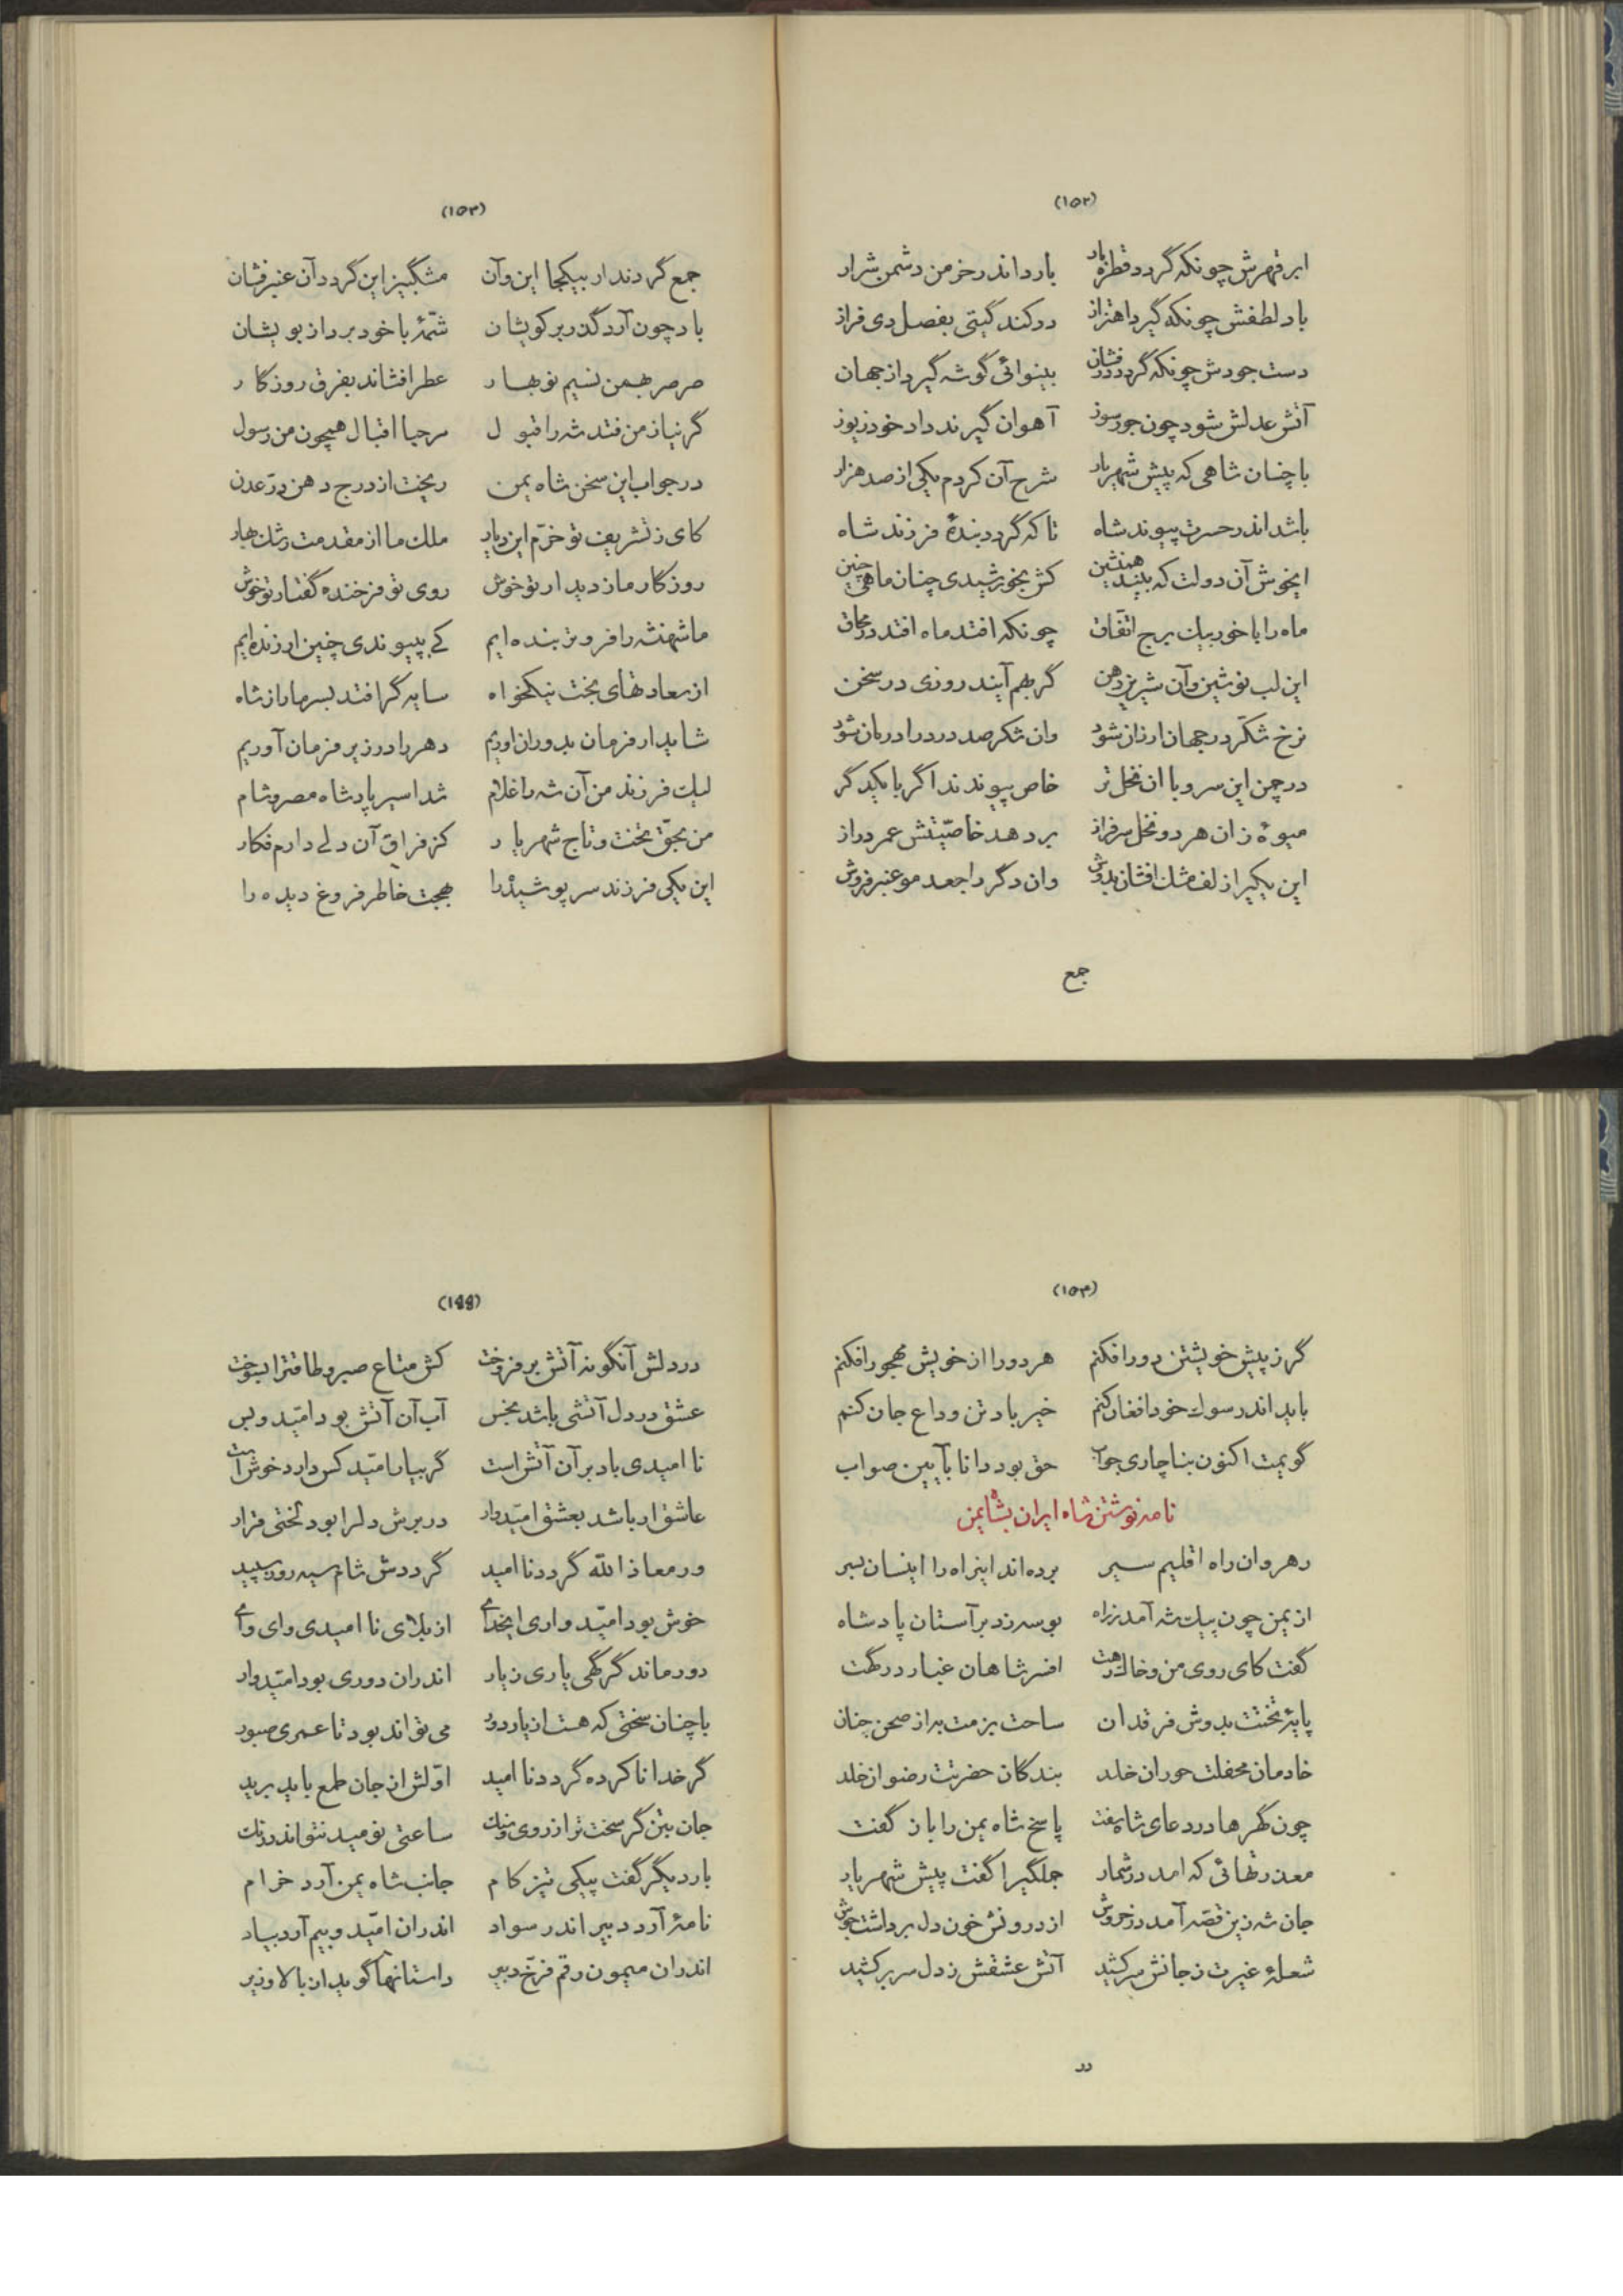 (۱۵۲)
ابر قهرش چونکه گردد قطره بار بارد اندر خرمن دشمن شرار
باد لطفش چونکه گیرد اهتزاز در کند گیتی بفصل دی فراز
دست جودش چونکه گردد درفشان بینوائی گوشه گیرد از جهان
آتش عدلش شود چون جورسوز آهوان گیرند داد خود زیوز
با چنان شاهی که پیش شهریار شرح آن کردم یکی از صد هزار
باشد اندر حسرت پیوند شاه تا که گردد بندهٔ فرزند شاه
ایخوش آن دولت که بیند همنشین کش بخورشیدی چنان ماهی چنین
ماه را با خور بیک برج اتفاق چونکه افتد ماه افتد در محاق
این لب نوشین و آن شیرین دهن گر بهم آیند روزی در سخن
نرخ شکّر در جهان ارزان شود وان شکر صد درد را درمان شود
در چمن این سرو با ان نخل تر خاص پیوندند اگر با یکدگر
میوهٔ زان هر دو نخل سرفراز بر دهد خاصّیتش عمر دراز
این یکیرا زلف مشک افشان بدوش وان دگر را جعد مو عنبرفروش
جمع
(۱۵۳)
جمع گردند ار بیکجا این و آن مشگبیز این گردد آن عنبرفشان
باد چون آرد گذر بر کویشان شمّهٔ با خود برد از بویشان
صرصر بهمن نسیم نوبهار عطر افشاند بفرق روزگار
گر نیاز من فتد شه را قبول مرحبا اقبال همچون من رسول
در جواب این سخن شاه یمن ریخت از درج دهن درّ عدن
کای ز تشریف تو خرّم این دیار ملک ما از مقدمت رشک بهار
روزگار ما ز دیدار تو خوش روی تو فرخنده گفتار تو خوش
ما شهنشه را فروتر بنده ایم کے بپیوندی چنین ارزنده ایم
از سعادتهای بخت نیکخواه سایه گر افتد بسر ما را ز شاه
شاید ار فرمان بدوران اوریم دهر را در زیر فرمان آوریم
لیک فرزند من آن شه را غلام شد اسیر پادشاه مصر و شام
من بحقّ تخت و تاج شهریار کز فراق آن دلے دارم فکار
این یکی فرزند سر پوشیده را بهجت خاطر فروغ دیده را
(۱۵۴)
گر ز پیش خویشتن دور افکنم هر دو را از خویش مهجور افکنم
باید اندر سوک خود افغان کنم خیر باد تن وداع جان کنم
گویمت اکنون بناچاری جواب حق بود دانا بآیین صواب
نامه نوشتن شاه ایران بشاه یمن
رهروان راه اقلیم سیر برده اند اینراه را اینسان بسر
از یمن چون پیک شه آمد ز راه بوسه زد بر آستان پادشاه
گفت کای روی من و خاک رهت افسر شاهان غبار درگهت
پایهٔ تختت بدوش فرقدان ساحت بزمت به از صحن جنان
خادمان محفلت حوران خلد بندگان حضرتت رضوان خلد
چون گهرها در دعای شاه سفت پاسخ شاه یمن را باز گفت
معذرتهائی که امد در شمار جملگیرا گفت پیش شهریار
جان شه زین قصّه آمد در خروش از درونش خون دل برداشت جوش
شعلهٔ غیرت ز جانش سر کشید آتش عشقش ز دل سر بر کشید
در
(۱۵۵)
در دلش آنگونه آتش برفروخت کش متاع صبر و طاقترا بسوخت
عشق در دل آتشی باشد بخس آب آن آتش بود امّید و بس
نا امیدی باد بر آن آتش است گر بیارا امّید کس دارد خوش است
عاشق ار باشد بعشق امّیدوار در برش دلرا بود لختی قرار
ور معاذ الله گردد نا امید گرددش شام سیه روز سپید
خوش بود امّیدواری ایخدای از بلای نا امیدی وای وای
دور ماند گر گهی یاری ز یار اندران دوری بود امّیدوار
با چنان سختی که هست از یار دور می تواند بود تا عمری صبور
گر خدا ناکرده گردد نا امید اوّلش از جان طمع باید برید
جان بتن گر سخت تر از روی و سنگ ساعتی نومید نتواند درنگ
بار دیگر گفت پیکی تیز کام جانب شاه یمن آرد خرام
نامهٔ آرد دبیر اندر سواد اندران امّید و بیم آرد بیاد
اندران میمون رقم فرّخ دبیر داستانها گوید از بالا و زیر